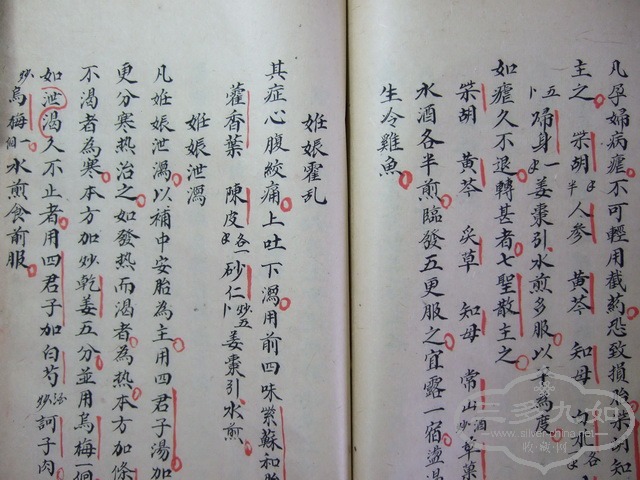 凡孕婦病瘧不可輕用截药恐致損胎柴胡知
主之 柴胡 半 人參 黃芩 知母
五卜 歸身一 姜棗引水煎多服以為度
如瘧久不退轉甚者七聖散主之
柴胡 黃芩 炙草 知母 常山酒炒草菓
水酒各半煎臨發五更服之宜露一宿盪
生冷雞魚
妊娠霍乱
其症心腹絞痛上吐下瀉用前四味紫蘇和胎
藿香葉 陳皮 各一 砂仁炒五卜 姜棗引水煎
妊娠泄瀉
凡妊娠泄瀉以補中安胎為主用四君子湯加
更分寒热治之如發热而渴者為热本方加條
不渴者為寒本方加炒乾姜五分並用烏梅一個
如泄渴久不止者用四君子加白芍酒炒訶子肉
炒烏梅一個水煎食前服
三多九如
www.silverchina.net
收藏网